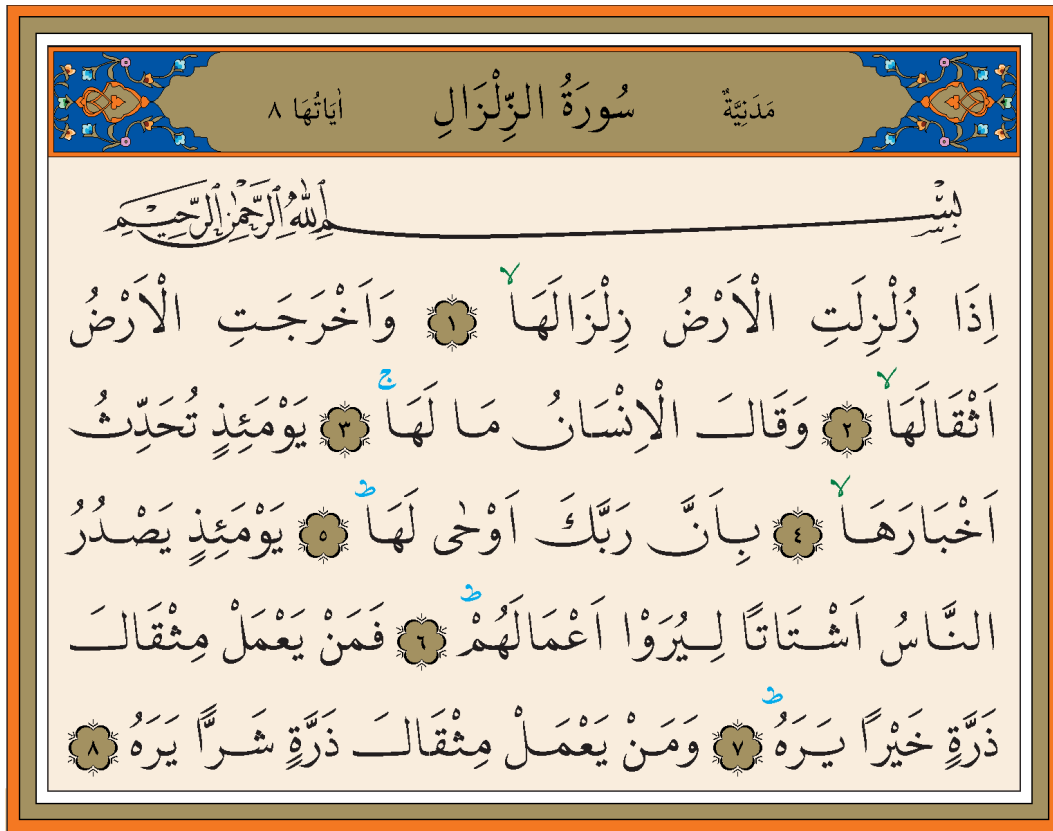 مَدَنِيَّةٌ سُورَةُ الزِّلْزَالِ اٰيَاتُهَا ٨
بِسْمِ اللّٰهِ الرَّحْمٰنِ الرَّحِيمِ
اِذَا زُلْزِلَتِ الْاَرْضُ زِلْزَالَهَاۙ ١ وَاَخْرَجَتِ الْاَرْضُ
اَثْقَالَهَاۙ ٢ وَقَالَ الْاِنْسَانُ مَا لَهَاۚ ٣ يَوْمَئِذٍ تُحَدِّثُ
اَخْبَارَهَاۙ ٤ بِاَنَّ رَبَّكَ اَوْحٰى لَهَاۜ ٥ يَوْمَئِذٍ يَصْدُرُ
النَّاسُ اَشْتَاتًا لِيُرَوْا اَعْمَالَهُمْۜ ٦ فَمَنْ يَعْمَلْ مِثْقَالَ
ذَرَّةٍ خَيْرًا يَرَهُۜ ٧ وَمَنْ يَعْمَلْ مِثْقَالَ ذَرَّةٍ شَرًّا يَرَهُ ٨